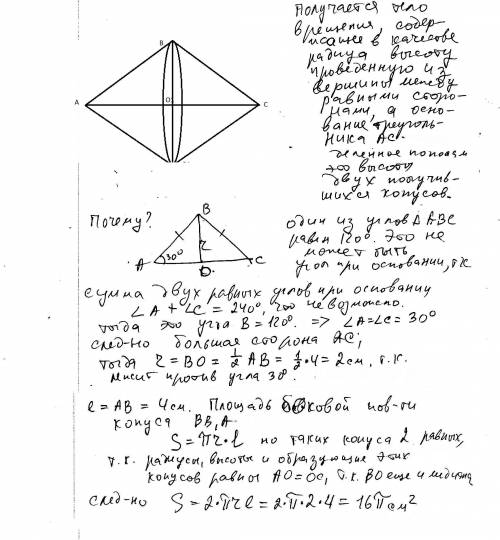 Получается тело
вращения, содер-
жащее в качестве
радиуса высоту
проведенную из
вершины между
равными сторо-
нами, а осно-
вание треуголь-
ника AC
деленное пополам
это высоты
двух получив-
шихся конусов.
B
A
O
C
Почему?
B
A
30°
r
O
C
один из углов Δ ABC
равен 120°. Это не
может быть
угол при основании, т.к
сумма двух равных углов при основании
∠A + ∠C = 240°, что невозможно.
тогда это угла B = 120°. => ∠A=∠C= 30°
след-но большая сторона AC;
тогда r = BO = 1/2 AB = 1/2 · 4 = 2см, т.к.
лежит против угла 30°.
l = AB = 4см. Площадь боковой пов-ти
конуса BB₁A
S = πr·l но таких конуса 2 равных,
т.к. радиусы, высоты и образующие этих
конусов равны AO=OC, т.к. BO еще и медиана
след-но S = 2·πrl = 2·π·2·4 = 16π см²